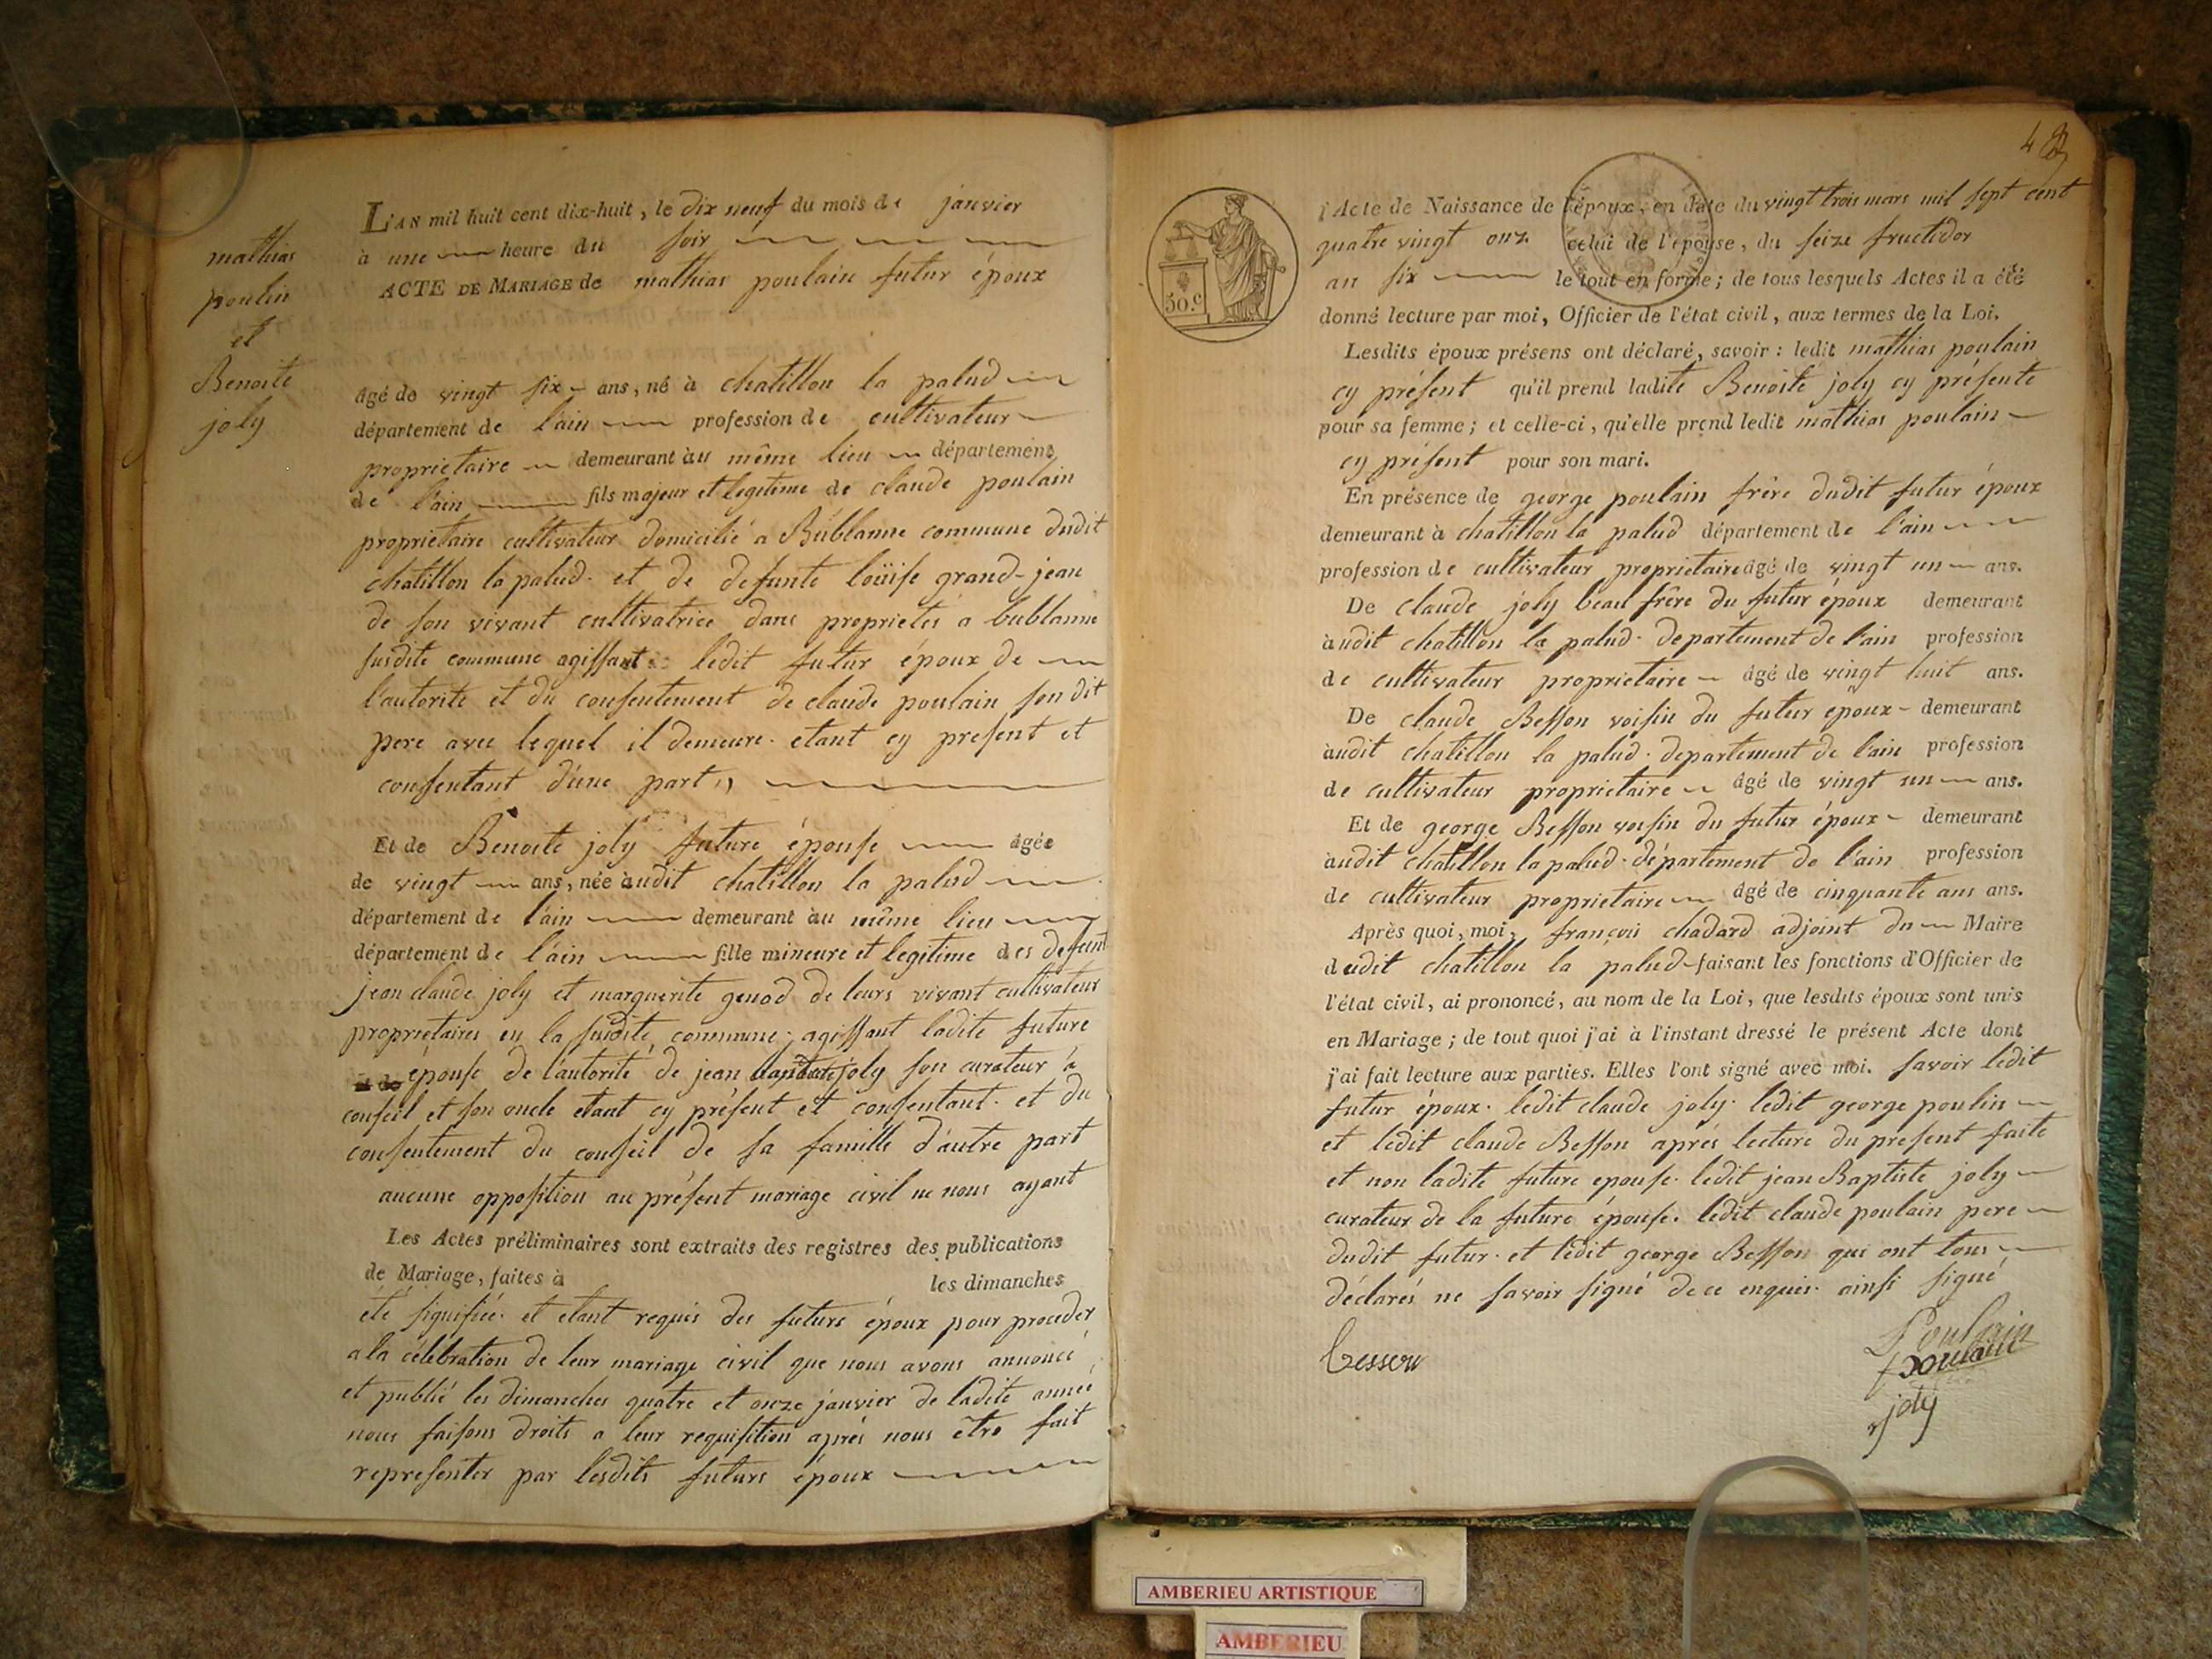 mathias
poulin
et
Benoite
joly
L'AN mil huit cent dix-huit, le dix neuf du mois de janvier
à une heure du soir
ACTE DE MARIAGE de mathias poulain futur époux
âgé de vingt six ans, né à chatillon la palud
département de l'ain profession de cultivateur
proprietaire demeurant au même lieu département
de l'ain fils majeur et legitime de claude poulain
proprietaire cultivateur domicilié a Bublanne commune dudit
chatillon la palud. et de defunte loüise grand-jean
de son vivant cultivatrice dans proprietés a bublanne
susdite commune agissant ledit futur époux de
l'autorité et du consentement de claude poulain son dit
pere avec lequel il demeure. etant cy present et
consentant d'une part,,
Et de Benoite joly future épouse âgée
de vingt ans, née audit chatillon la palud
département de l'ain demeurant au même lieu
département de l'ain fille mineure et legitime des defunt
jean claude joly et marguerite genod de leurs vivant cultivateur
proprietaires en la susdite commune. agissant ladite future
épouse de l'autorité de jean baptiste joly son curateur à
conseil et son oncle etant cy présent et consentant. et du
consentement du conseil de sa famille d'autre part
aucune opposition au présent mariage civil ne nous ayant
Les Actes préliminaires sont extraits des registres des publications
de Mariage, faites à les dimanches
été signifiée. et etant requis des futurs époux pour proceder
a la célébration de leur mariage civil que nous avons annoncé
et publié les dimanches quatre et onze janvier de ladite année
nous faisons droits a leur requisition aprés nous être fait
representer par lesdits futurs époux
4
l'Acte de Naissance de l'époux, en date du vingt trois mars mil sept cent
quatre vingt onz celui de l'épouse, du seize fructidor
an six le tout en forme; de tous lesquels Actes il a été
donné lecture par moi, Officier de l'état civil, aux termes de la Loi.
50.c
Lesdits époux présens ont déclaré, savoir : ledit mathias poulain
cy présent qu'il prend ladite Benoite joly cy présente
pour sa femme; et celle-ci, qu'elle prend ledit mathias poulain
cy présent pour son mari.
En présence de george poulain frère dudit futur époux
demeurant à chatillon la palud département de l'ain
profession de cultivateur proprietaire âgé de vingt un ans.
De claude joly beau frère du futur époux demeurant
audit chatillon la palud. departement de l'ain profession
de cultivateur proprietaire âgé de vingt huit ans.
De claude Besson voisin du futur époux demeurant
audit chatillon la palud. departement de l'ain profession
de cultivateur proprietaire âgé de vingt un ans.
Et de george Besson voisin du futur époux demeurant
audit chatillon la palud. département de l'ain profession
de cultivateur proprietaire âgé de cinquante ans ans.
Après quoi, moi, françois chadard adjoint du Maire
dudit chatillon la palud faisant les fonctions d'Officier de
l'état civil, ai prononcé, au nom de la Loi, que lesdits époux sont unis
en Mariage; de tout quoi j'ai à l'instant dressé le présent Acte dont
j'ai fait lecture aux parties. Elles l'ont signé avec moi. savoir ledit
futur époux. ledit claude joly. ledit george poulin
et ledit claude Besson aprés lecture du present faite
et non ladite future epouse. ledit jean Baptiste joly
curateur de la future épouse. ledit claude poulain pere
dudit futur. et ledit george Besson qui ont tous
déclarés ne savoir signé de ce enquis. ainsi signé
Poulain
poulain
joly
AMBERIEU ARTISTIQUE
AMBERIEU